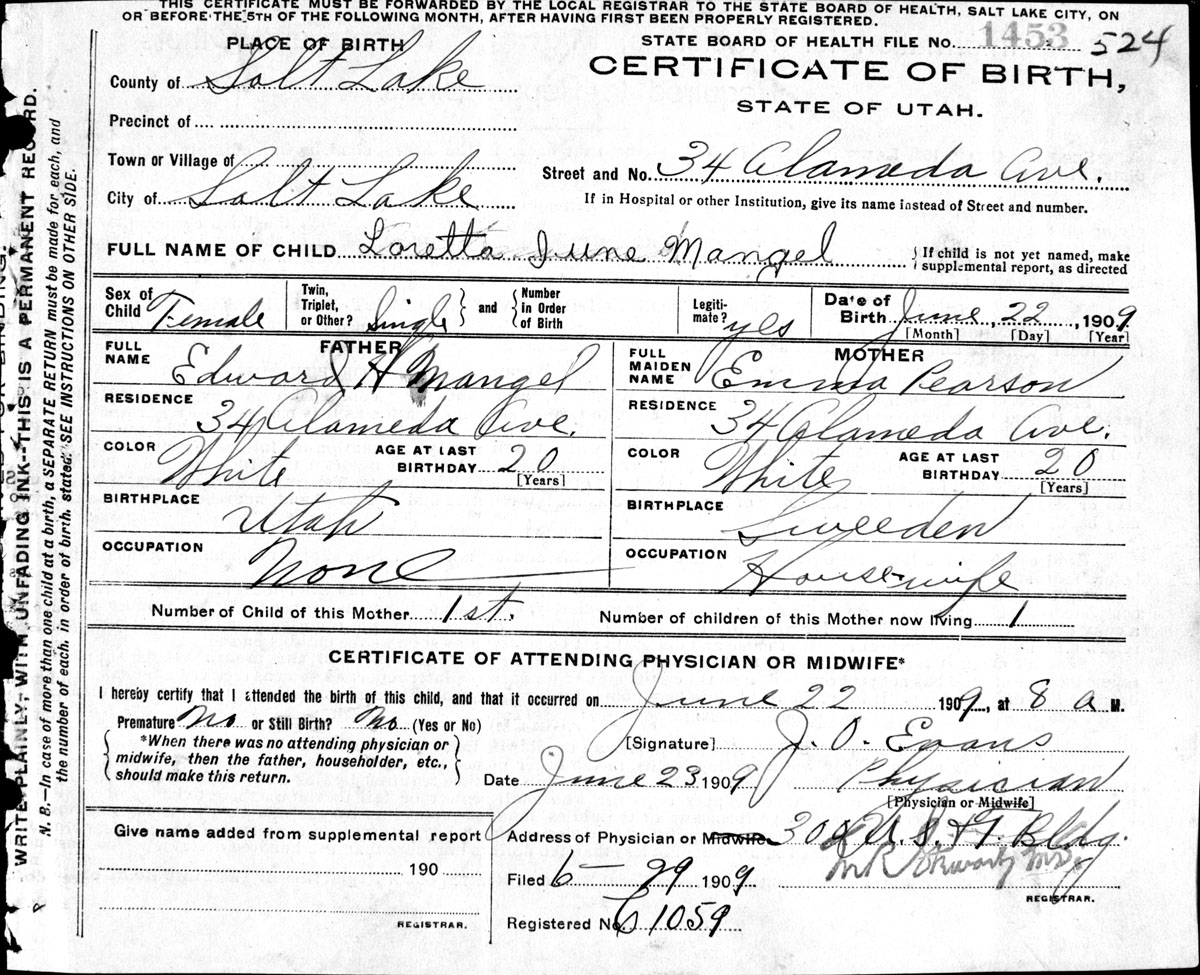 THIS CERTIFICATE MUST BE FORWARDED BY THE LOCAL REGISTRAR TO THE STATE BOARD OF HEALTH, SALT LAKE CITY, ON
OR BEFORE THE 5TH OF THE FOLLOWING MONTH, AFTER HAVING FIRST BEEN PROPERLY REGISTERED.
PLACE OF BIRTH
STATE BOARD OF HEALTH FILE No. 1453 524
CERTIFICATE OF BIRTH,
STATE OF UTAH.
County of Salt Lake
Precinct of
Town or Village of
City of Salt Lake
Street and No. 34 Alameda Ave.
If in Hospital or other Institution, give its name instead of Street and number.
FULL NAME OF CHILD Loretta June Mangel
If child is not yet named, make
supplemental report, as directed
Sex of Child Female
Twin, Triplet, or Other? Single and Number in Order of Birth
Legiti-mate? yes
Date of Birth June, 22, 1909
[Month] [Day] [Year]
FATHER
FULL NAME Edward H Mangel
RESIDENCE 34 Alameda Ave.
COLOR White AGE AT LAST BIRTHDAY 20
[Years]
BIRTHPLACE Utah
OCCUPATION None
MOTHER
FULL MAIDEN NAME Emma Pearson
RESIDENCE 34 Alameda Ave.
COLOR White AGE AT LAST BIRTHDAY 20
[Years]
BIRTHPLACE Sweeden
OCCUPATION Housewife
Number of Child of this Mother 1st. Number of children of this Mother now living 1
CERTIFICATE OF ATTENDING PHYSICIAN OR MIDWIFE*
I hereby certify that I attended the birth of this child, and that it occurred on June 22 1909, at 8 a M.
Premature No or Still Birth? No (Yes or No)
*When there was no attending physician or
midwife, then the father, householder, etc.,
should make this return.
[Signature] J. O. Evans
Date June 23 1909 Physician
[Physician or Midwife]
Give name added from supplemental report
190
REGISTRAR.
Address of Physician or Midwife U. S. & T. Bldg.
Filed 6-29 1909
REGISTRAR.
Registered No. 1059
WRITE PLAINLY, WITH UNFADING INK--THIS IS A PERMANENT RECORD.
N. B.—In case of more than one child at a birth, a SEPARATE RETURN must be made for each, and
the number of each, in order of birth, stated. SEE INSTRUCTIONS ON OTHER SIDE.